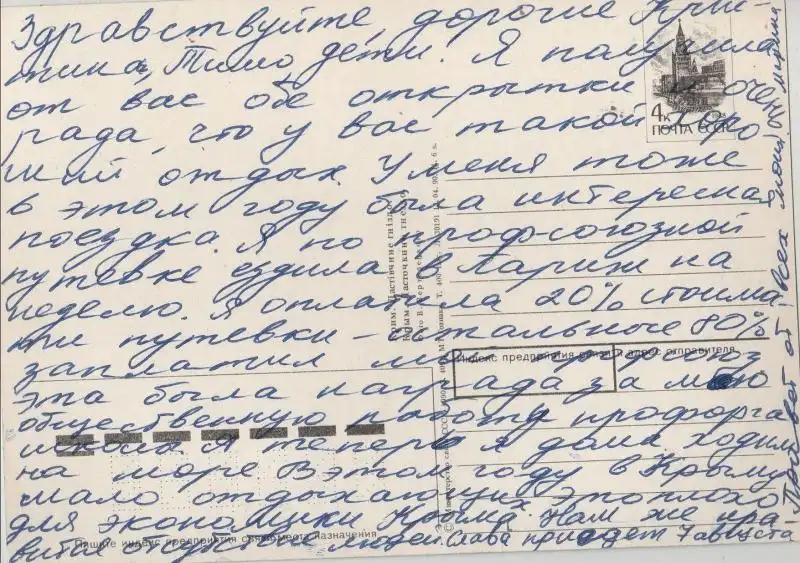 Здравствуйте, дорогие Крис-
тина, Тимо дети. Я получила
от вас обе открытки и очень
рада, что у вас такой хоро
ший отдых. У меня тоже
в этом году была интересная
поездка. Я по профсоюзной
путевке ездила в Париж на
неделю. Я оплатила 20% стоимос
ти путевки - остальные 80%
заплатил
эта была награда за мою
общественную работу профорга
школы. А теперь я дома ходим
на море. В этом году в Крыму
мало отдыхающих это плохо
для экономики Крыма. Нам же нра-
вится отсутствие людей. Слава приедет 7 августа
Привет от всех моих.
Марина
4к
ПОЧТА СССР
Индекс предприятия связи и адрес отправителя
Пишите индекс предприятия связи места назначения